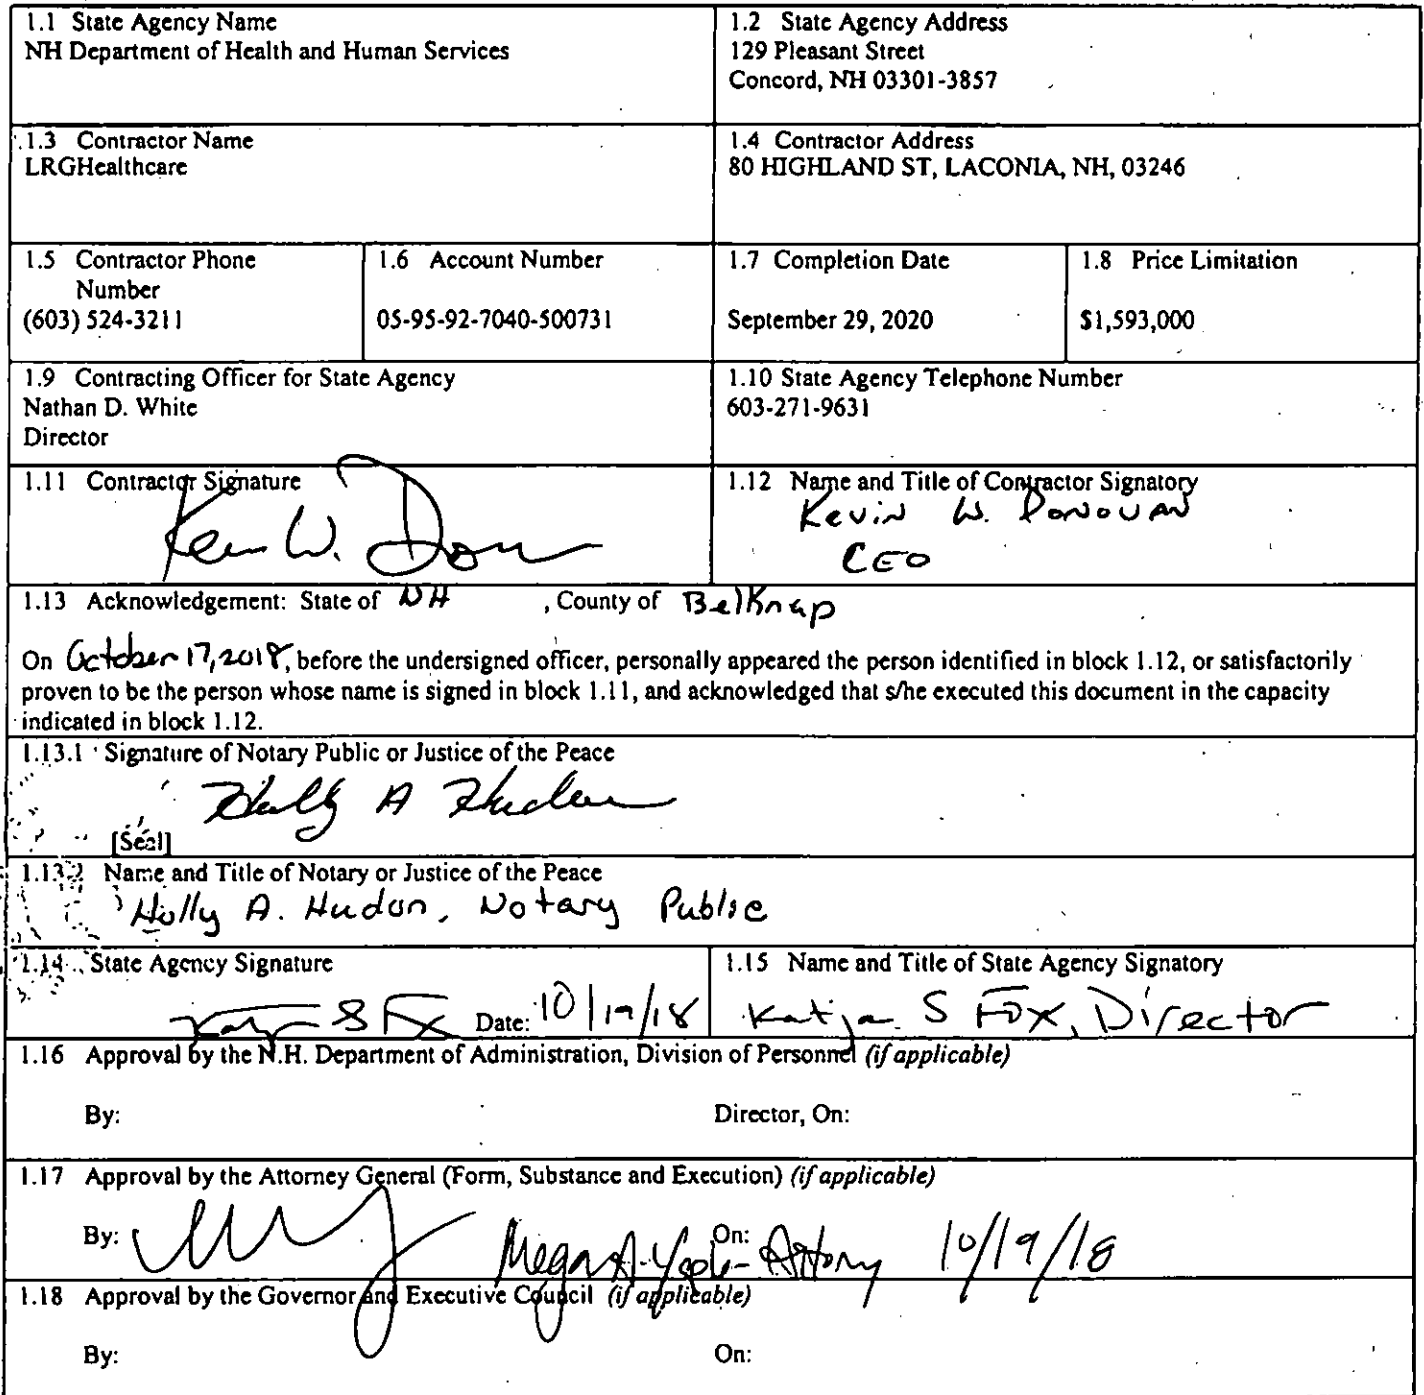 1.1 State Agency Name
NH Department of Health and Human Services
1.2 State Agency Address
129 Pleasant Street
Concord, NH 03301-3857
1.3 Contractor Name
LRGHealthcare
1.4 Contractor Address
80 HIGHLAND ST, LACONIA, NH, 03246
1.5 Contractor Phone
Number
(603) 524-3211
1.6 Account Number
05-95-92-7040-500731
1.7 Completion Date
September 29, 2020
1.8 Price Limitation
$1,593,000
1.9 Contracting Officer for State Agency
Nathan D. White
Director
1.10 State Agency Telephone Number
603-271-9631
1.11 Contractor Signature
W.
1.12 Name and Title of Contractor Signatory
Kevin W. Donovan
CEO
1.13 Acknowledgement: State of NH , County of Belknap
On October 17, 2018, before the undersigned officer, personally appeared the person identified in block 1.12, or satisfactorily
proven to be the person whose name is signed in block 1.11, and acknowledged that s/he executed this document in the capacity
indicated in block 1.12.
1.13.1 Signature of Notary Public or Justice of the Peace
Holly A Hudon
[Seal]
1.13.2 Name and Title of Notary or Justice of the Peace
Holly A. Hudon, Notary Public
1.14 State Agency Signature
Date: 10/19/18
1.15 Name and Title of State Agency Signatory
Katja S Fox, Director
1.16 Approval by the N.H. Department of Administration, Division of Personnel (if applicable)
By: Director, On:
1.17 Approval by the Attorney General (Form, Substance and Execution) (if applicable)
By: Megan A. On: 10/19/18
1.18 Approval by the Governor and Executive Council (if applicable)
By: On: